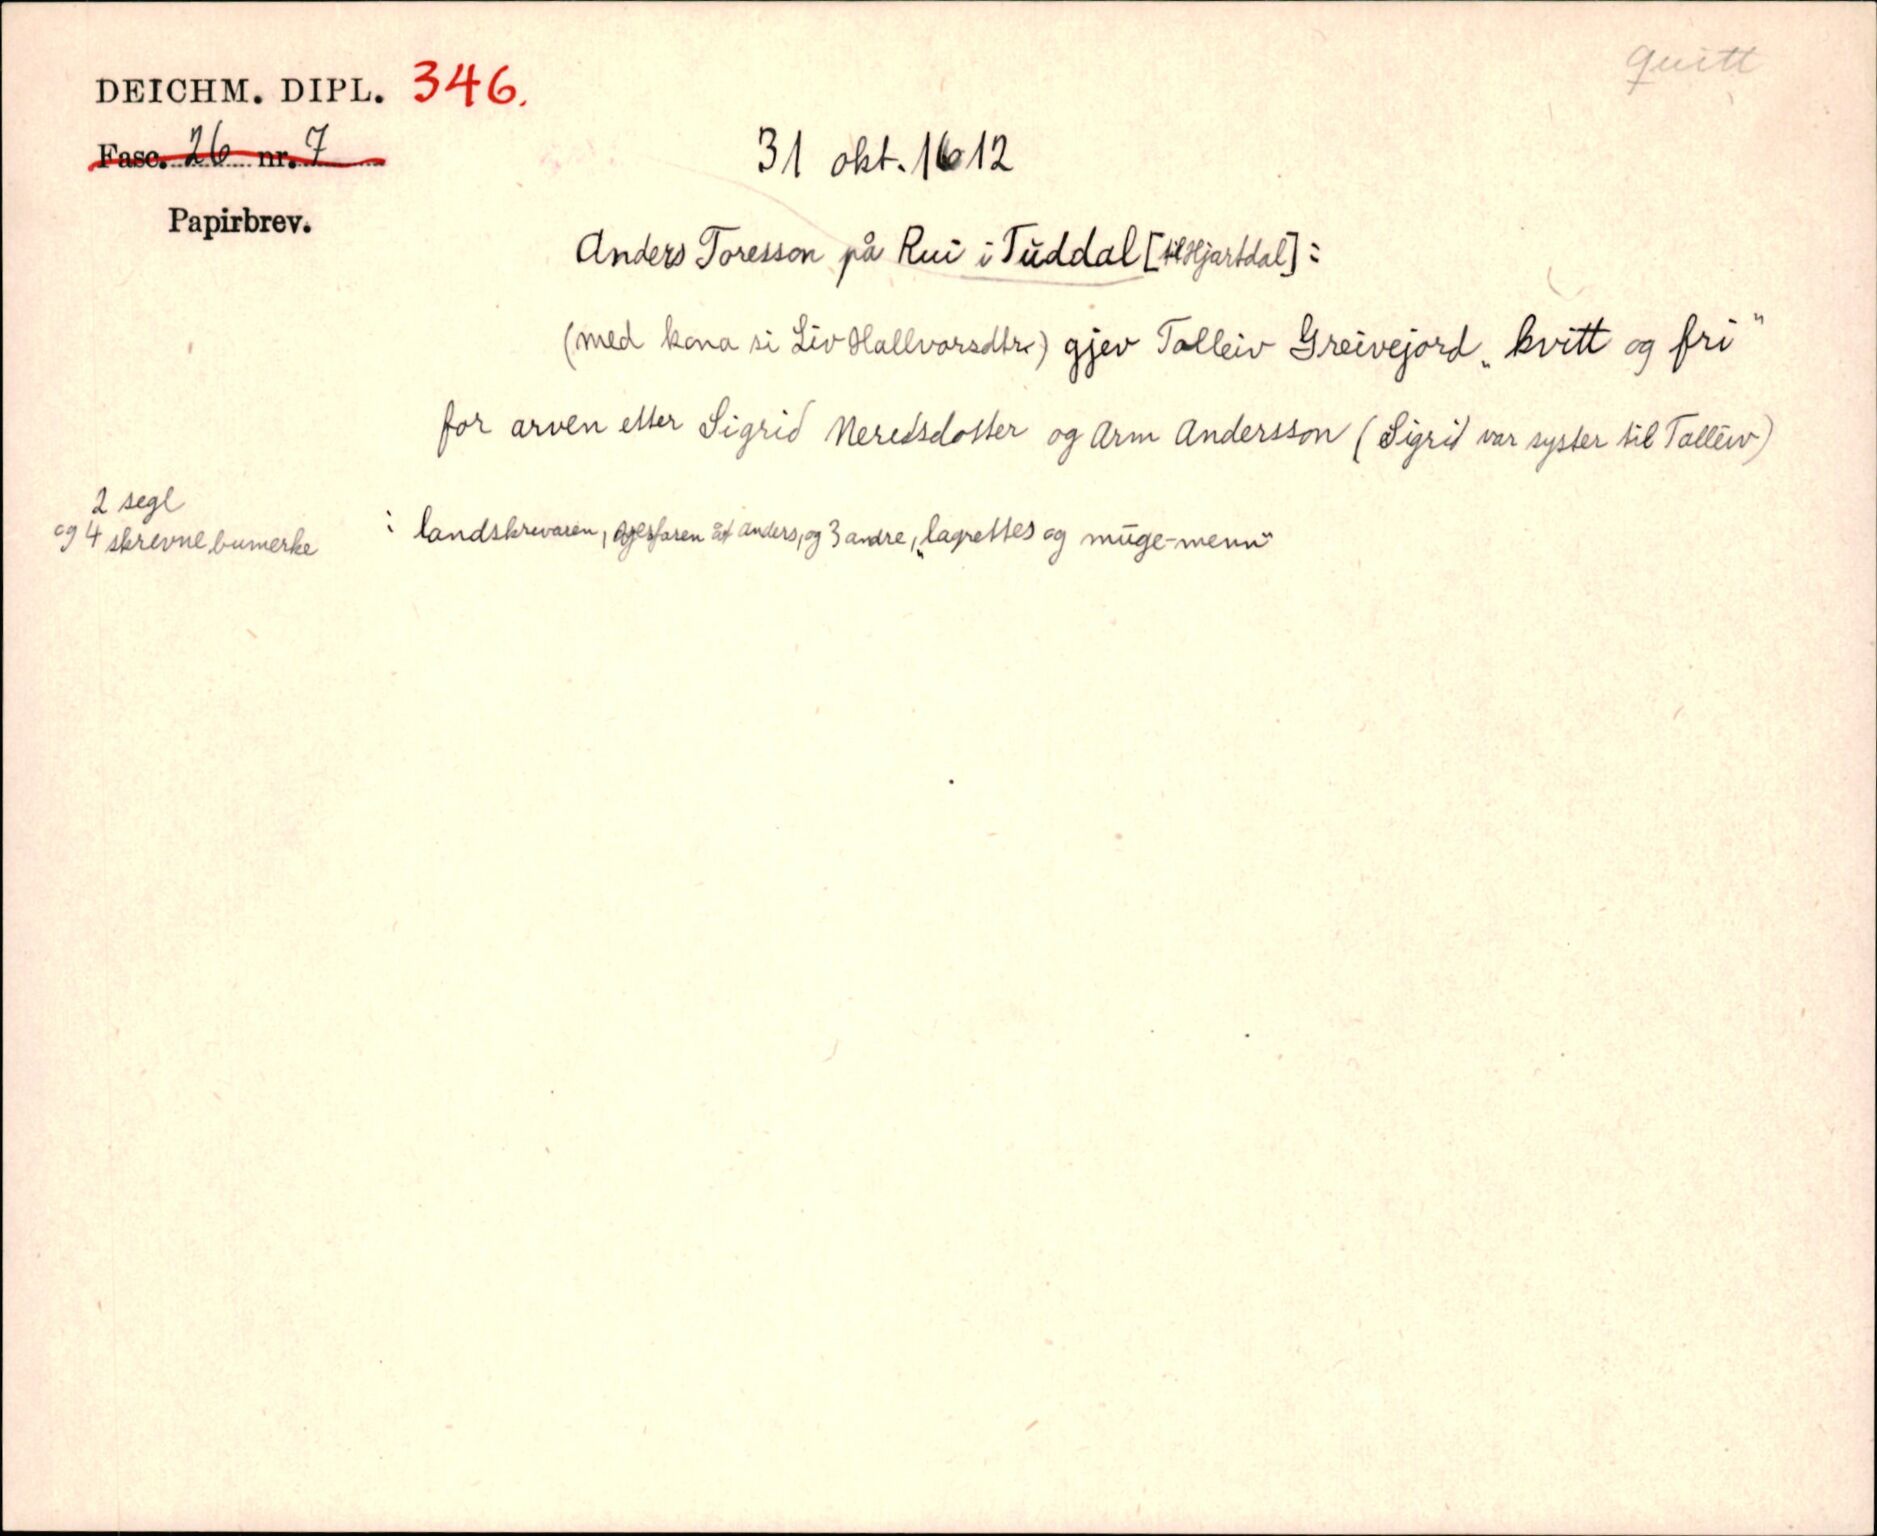 quitt
DEICHM. DIPL. 346.
Fasc. 26 nr. 7
31 okt. 1612
Papirbrev.
Anders Toresson på Rui i Tŭddal [til Hjartdal]:
(med kona si Liv Hallvorsdtr.) gjev Talleiv Greivejord „kvitt og fri”
for arven etter Sigrid Neridsdotter og Arm Andersson (Sigrid var syster til Talleiv)
2 segl
og 4 skrevne bumerke
: landskrivaren, åt Anders, og 3 andre, „lagrettes og mūge-menn”